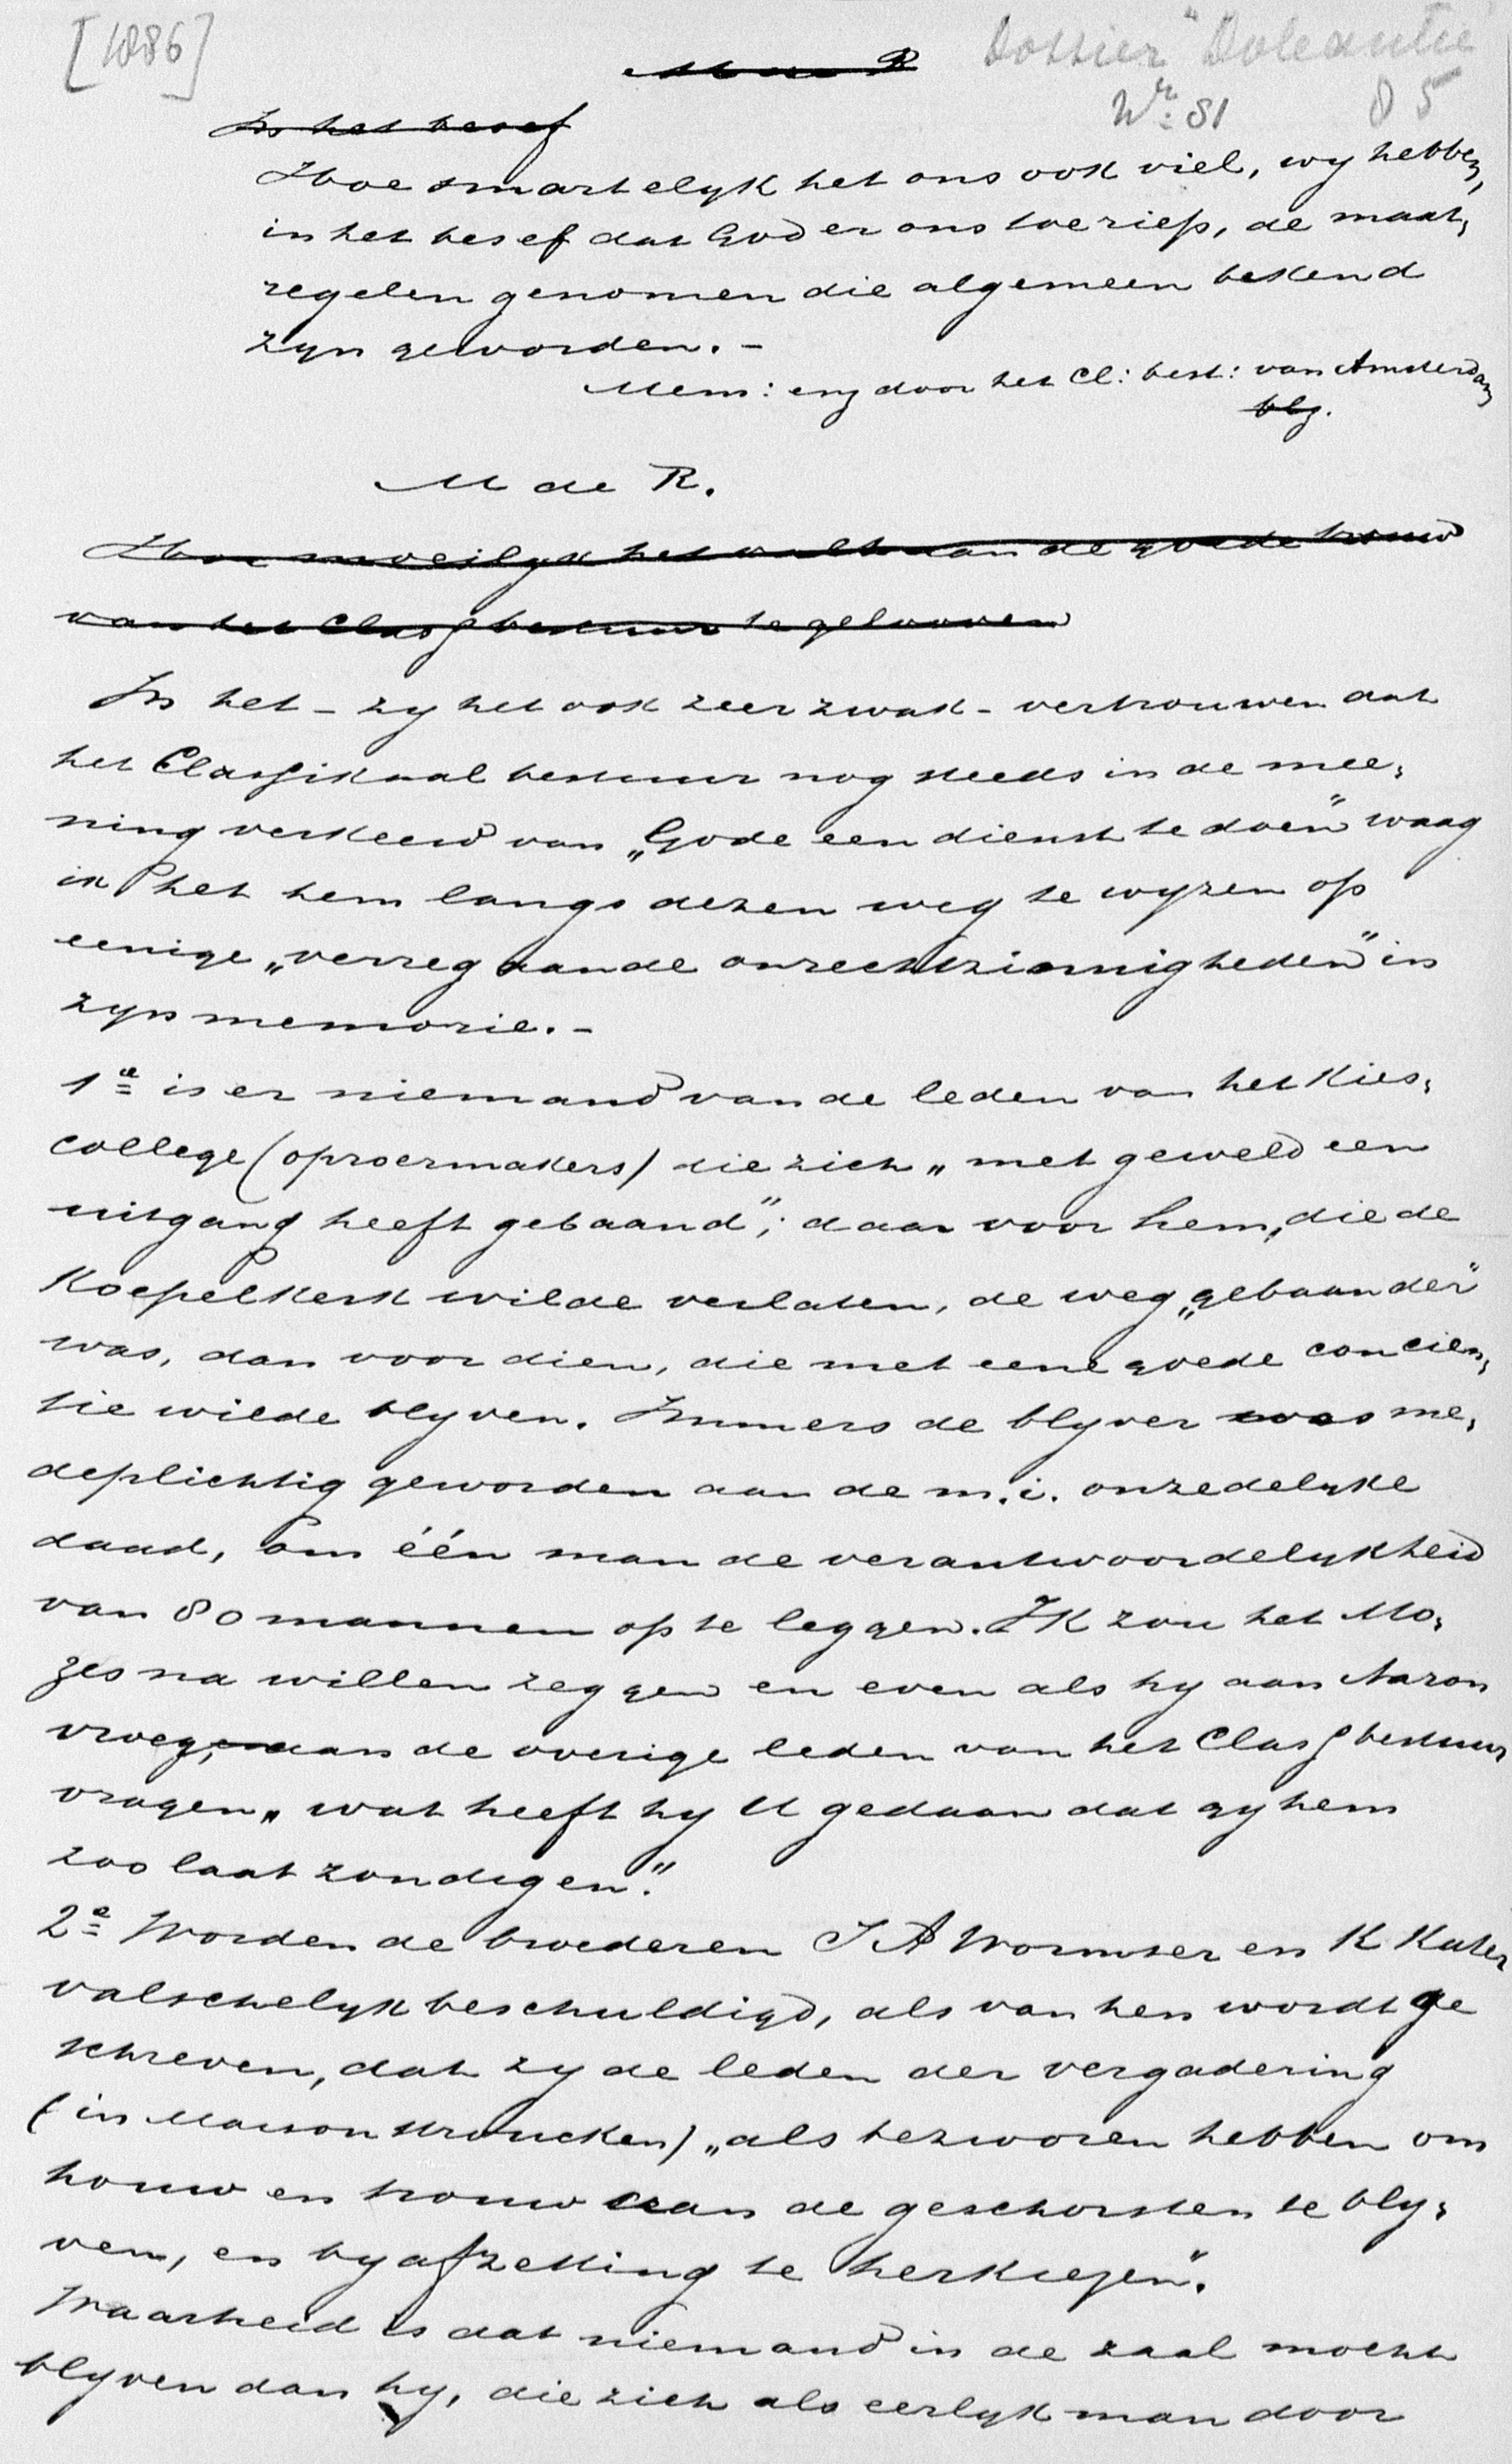 [1886]
Dossier "Doleantie"
Nr: 81 85
M de R
In het besef
Hoe smartelyk het ons ook viel, wy hebben,
in het besef dat God er ons toe riep, de maat,
regelen genomen die algemeen bekend
zyn geworden. -
Mem: enz door het Cl: best: van Amsterdam
blz.
M de R.
Hoe moeilyk het valt aan de goede trouw
van het Class bestuur te gelooven
In het - zy het ook zeer zwak - vertrouwen dat
het Classikaal bestuur nog steeds in de mee,
ning verkeerd van „Gode een dienst te doen" waag
ik het hem langs dezen weg te wyzen op
eenige „verreg aande onrechtzinnigheden" in
zyn memorie. -
1e is er niemand van de leden van het Kies,
college (oproermakers) die zich „met geweld een
uitgang heeft gebaand"; daar voor hem, die de
Koepelkerk wilde verlaten, de weg „gebaander"
was, dan voor dien, die met eene goede concien,
tie wilde blyven. Immers de blyver was me,
deplichtig geworden aan de m.i. onzedelyke
daad, om één man de verantwoordelykheid
van 80 mannen op te leggen. Ik zou het Mo,
zes na willen zeggen en even als hy aan Aaron
vroeg, aan de overige leden van het Class bestuur
vragen „wat heeft hy U gedaan dat gy hem
zoo laat zondigen."
2e Worden de broederen J A Wormser en K Kater
valschelyk beschuldigd, als van hen wordt ge
schreven, dat zy de leden der vergadering
(in Maison Stroucken) „als bezworen hebben om
houw en trouw aan de geschorsten te bly,
ven, en by afzetting te herkiezen".
Waarheid is dat niemand in de zaal mocht
blyven dan hy, die zich als eerlyk man door